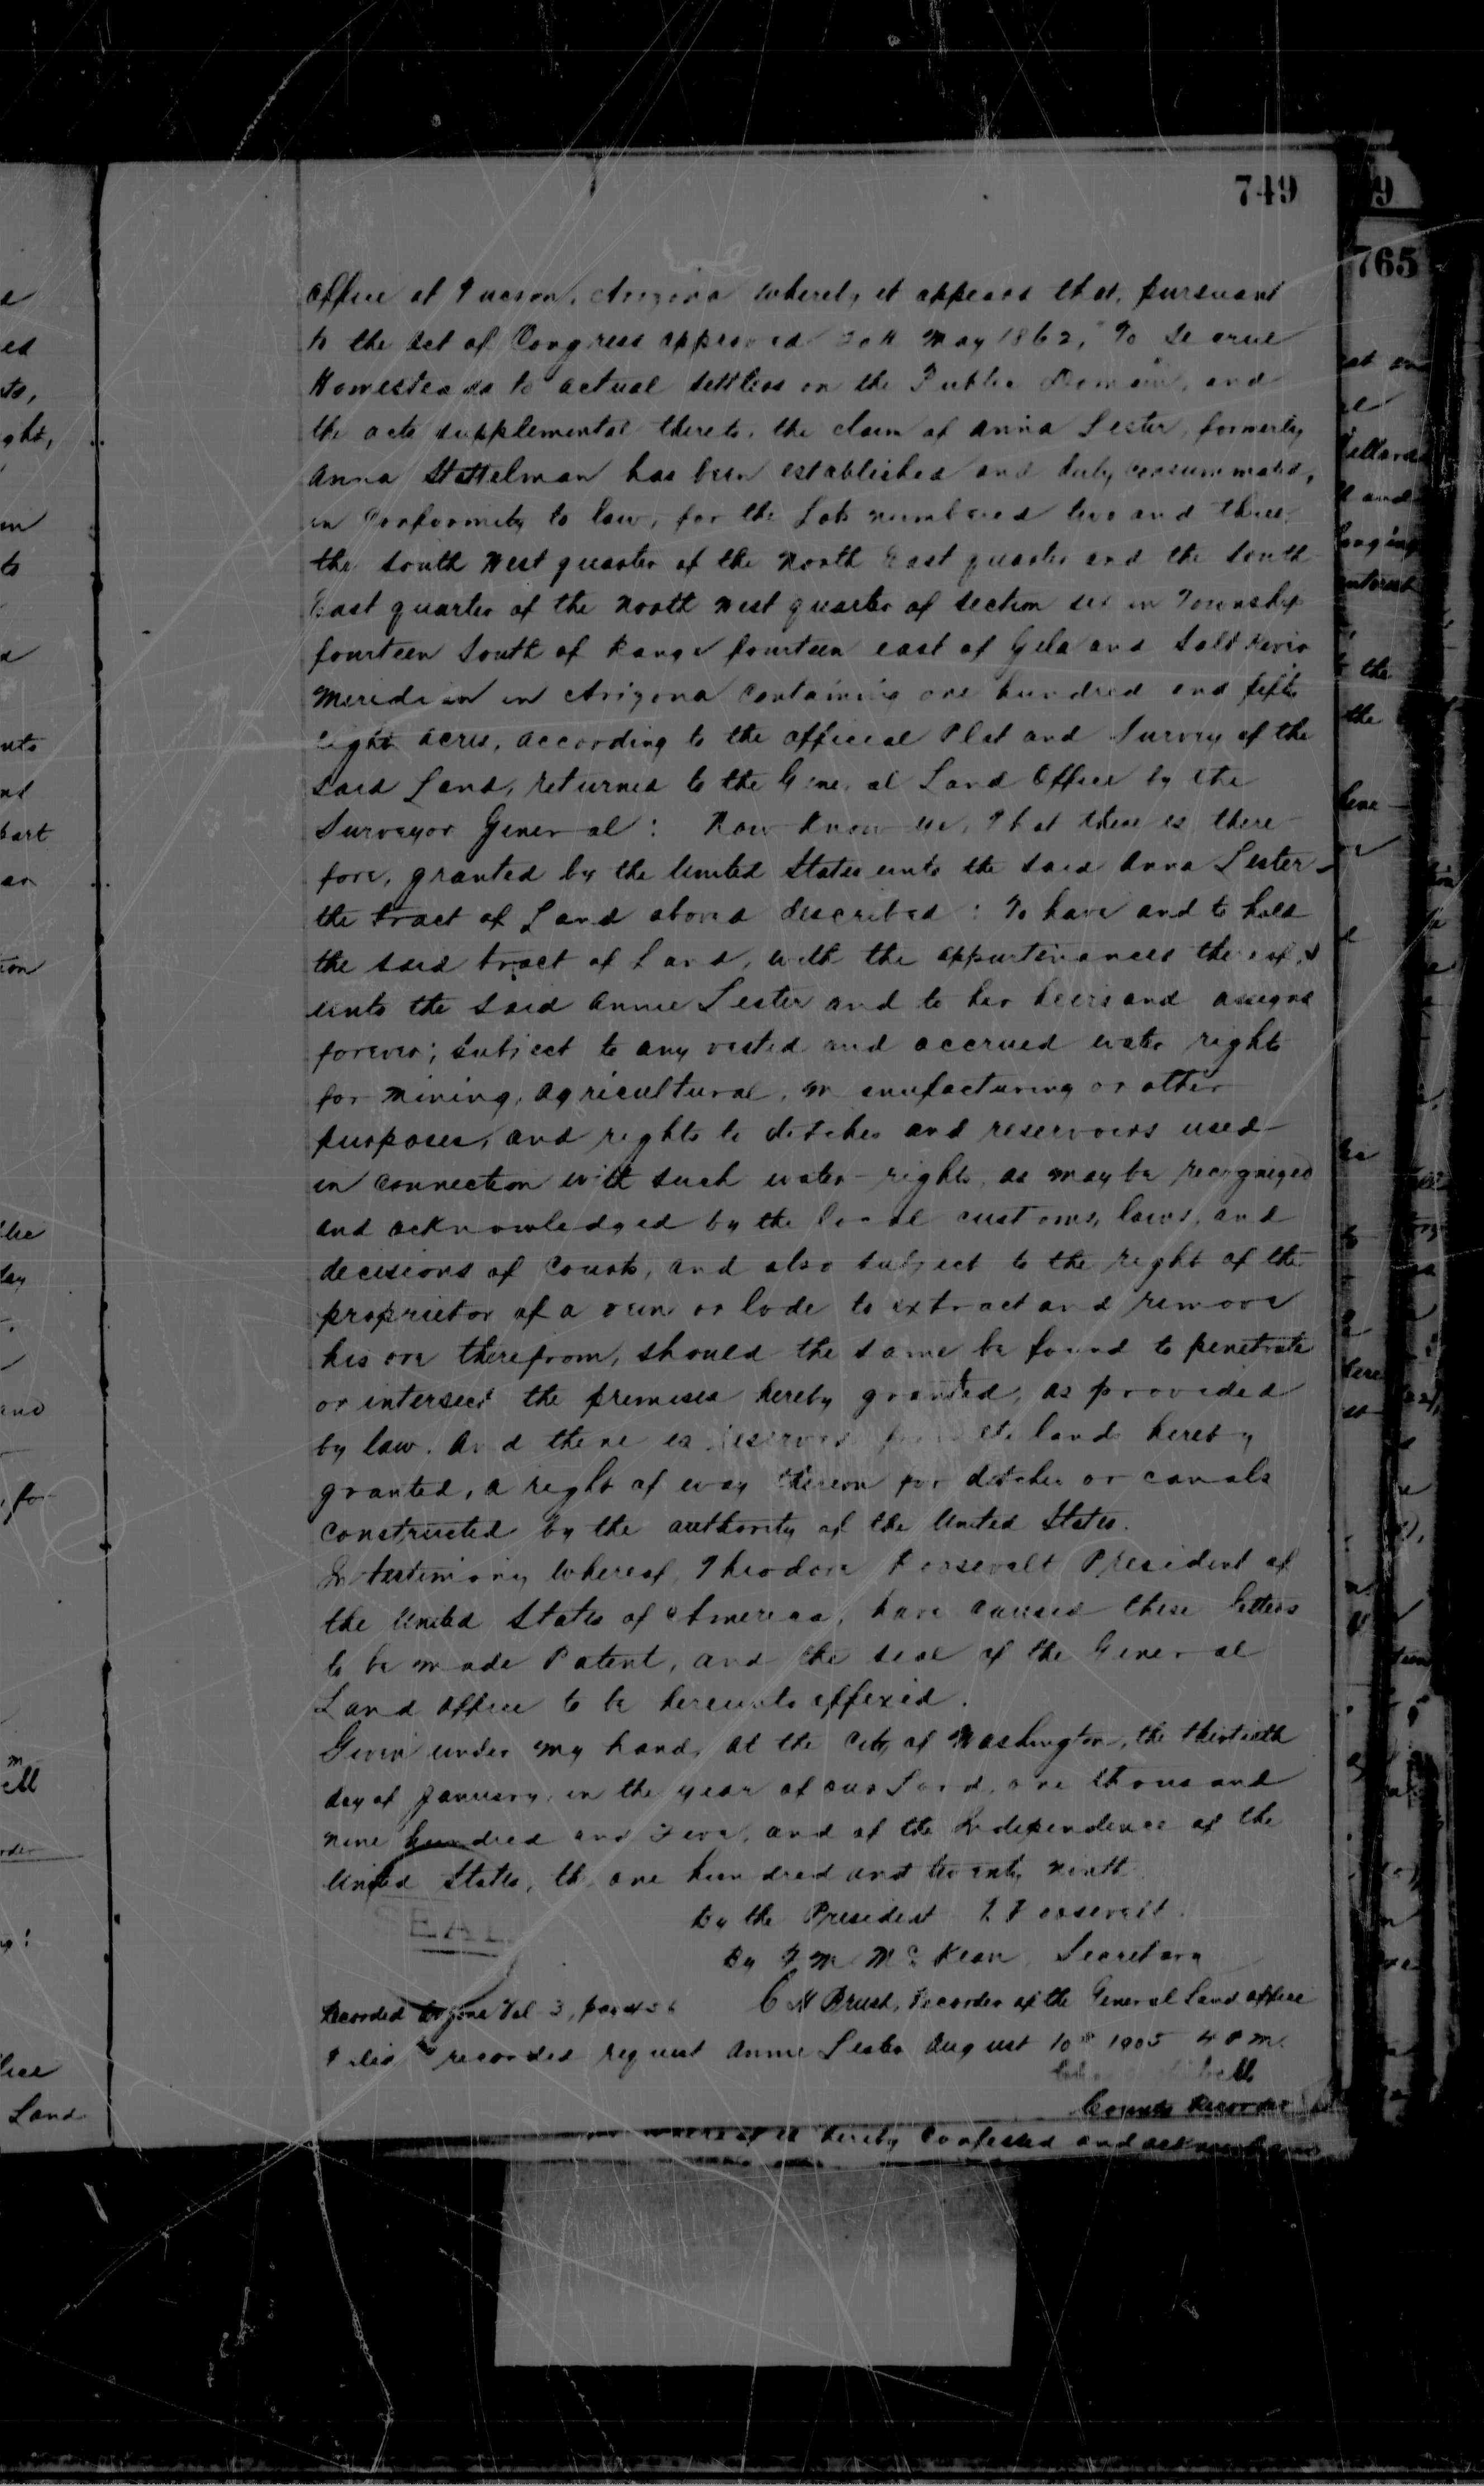 749
office at Tucson, Arizona whereby it appears that, pursuant
to the Act of Congress approved 20th May 1862, "To Secure
Homesteads to actual settlers on the Public Domain", and
the acts supplemental thereto, the claim of Anna Lester, formerly
Anna Stattelman has been established and duly consummated,
in Conformity to law, for the Lots numbered two and three,
the South West quarter of the North East quarter and the South
East quarter of the North West quarter of section six in Township
fourteen South of Range fourteen east of Gila and Salt River
Meridian in Arizona Containing one hundred and fifty
eight acres, according to the official Plat and Survey of the
said Land, returned to the General Land Office by the
Surveyor General: Now know ye, That there is there-
fore, granted by the United States unto the said Anna Lester
the tract of Land above described: To have and to hold
the said tract of Land, with the appurtenances thereof,
unto the said Annie Lester and to her heirs and assigns
forever; subject to any vested and accrued water rights
for Mining, Agricultural, Manufacturing or other
purposes, and rights to ditches and reservoirs used
in connection with such water-rights, as may be recognized
and acknowledged by the local customs, laws, and
decisions of Courts, and also subject to the right of the
proprietor of a vein or lode to extract and remove
his ore therefrom, should the same be found to penetrate
or intersect the premises hereby granted, as provided
by law. And there is reserved from the lands hereby
granted, a right of way thereon for ditches or canals
constructed by the authority of the United States.
In testimony Whereof, Theodore Roosevelt President of
the United States of America, have caused these letters
to be made Patent, and the seal of the General
Land Office to be hereunto affixed.
Given under my hand, at the City of Washington, the thirtieth
day of January, in the year of our Lord, one thousand
nine hundred and five, and of the Independence of the
United States, the one hundred and twenty ninth
SEAL
By the President T Roosevelt.
By F M McKean, Secretary
C H Brush, Recorder of the General Land office
Recorded Arizona Vol 3, page
Filed recorded request Annie Lester August 10th 1905 4 P M.
County Recorder
hereby Confessed and
765